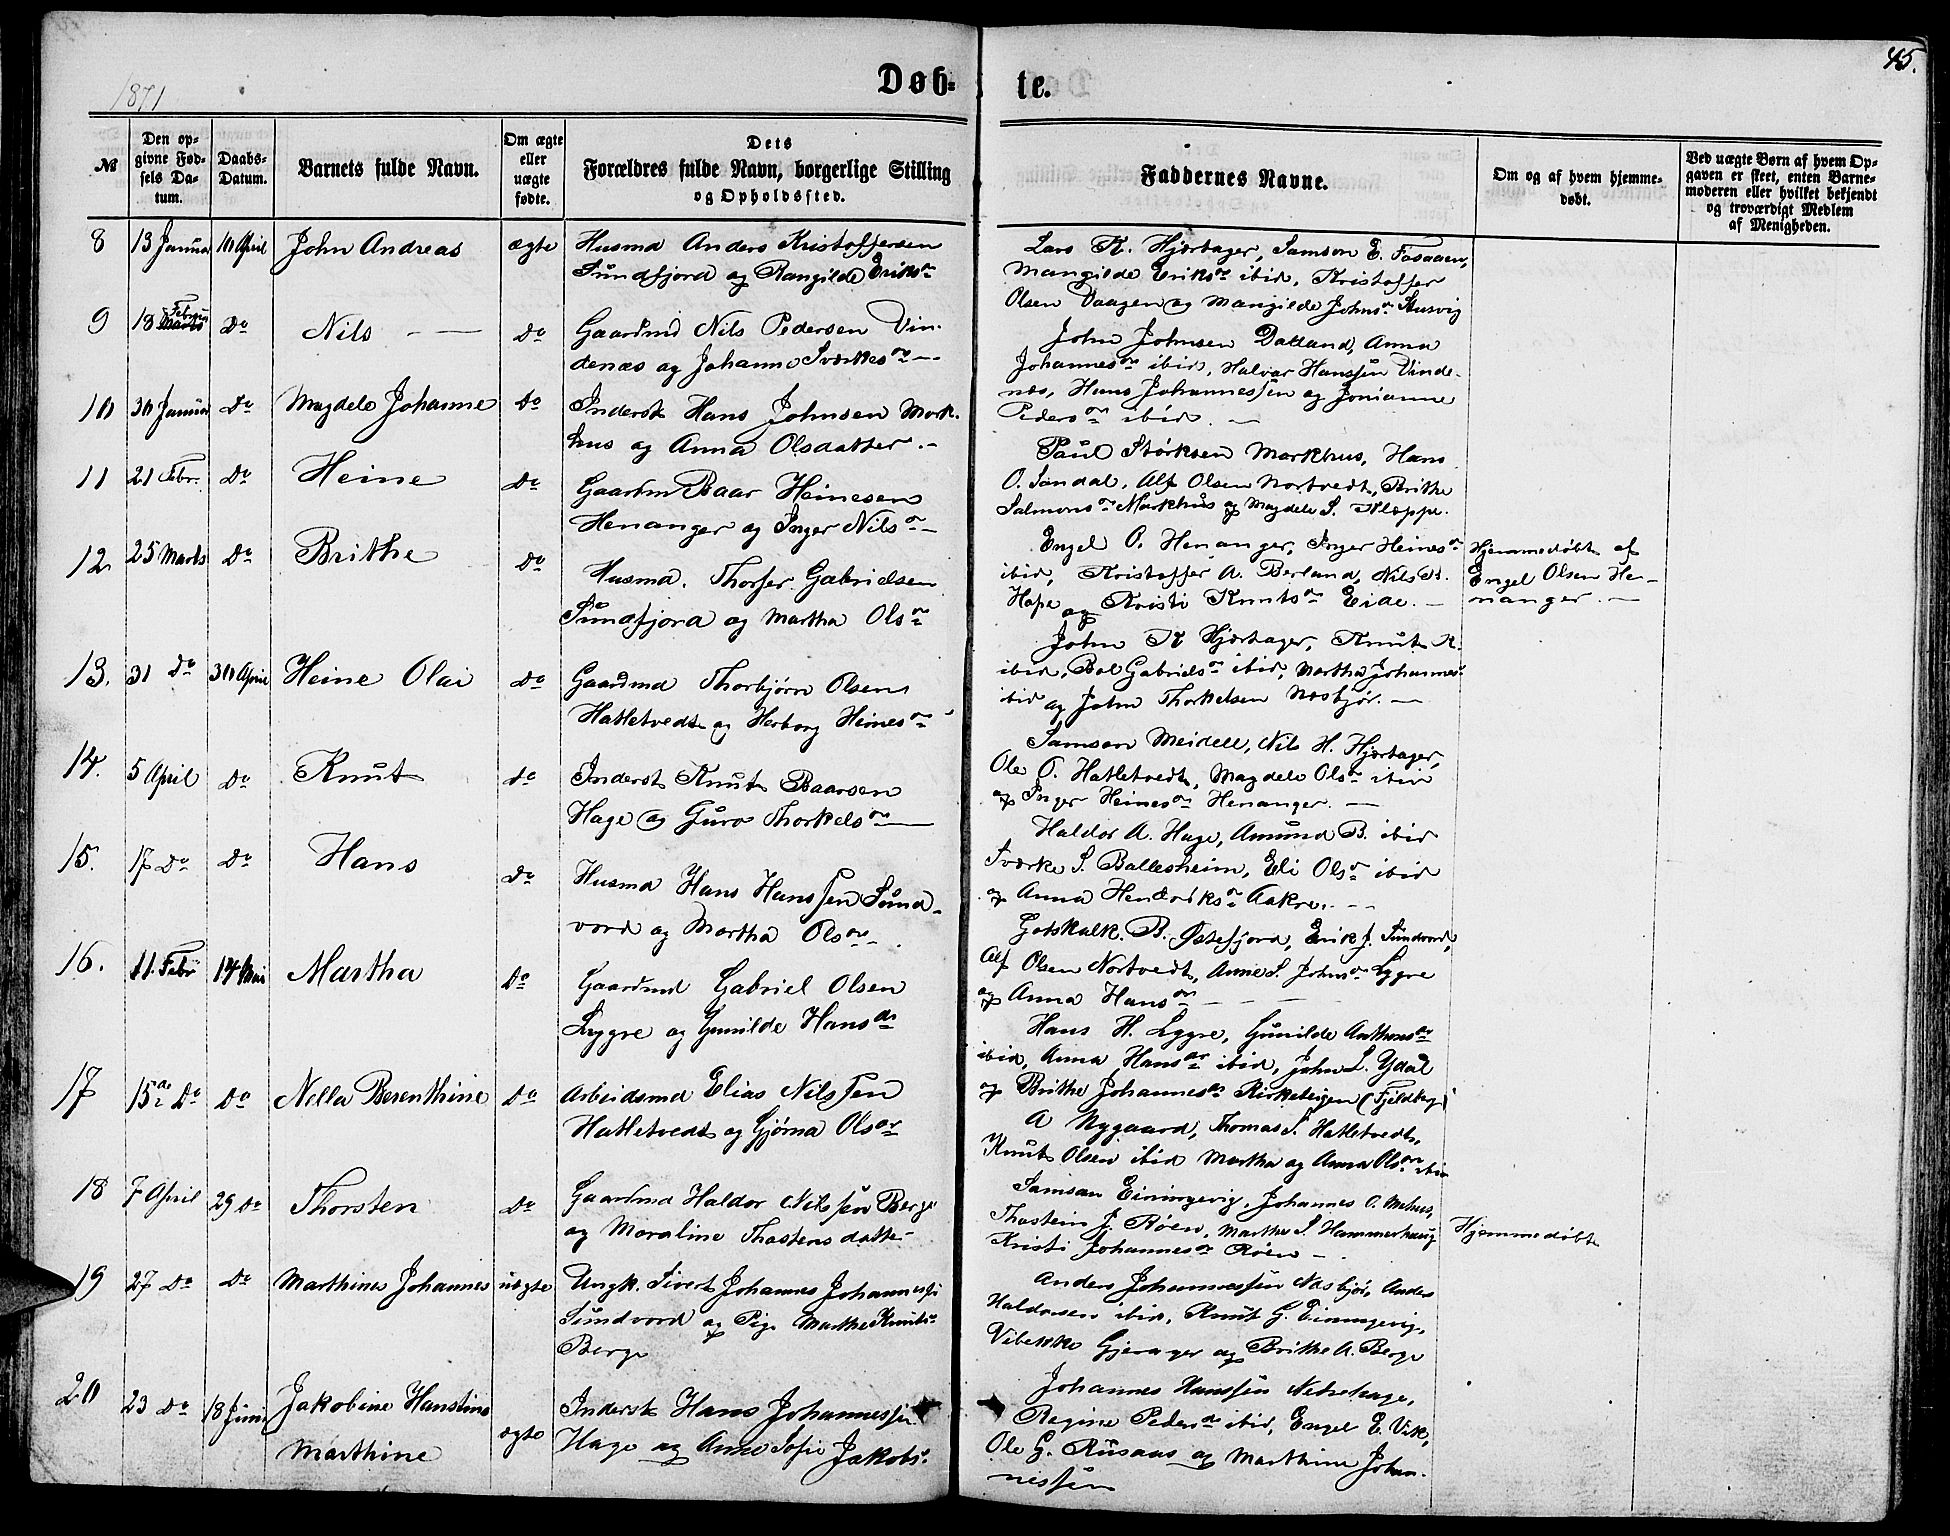 45.
1871
Døb-
te.
№
Den op-
givne Fød-
sels Da-
tum.
Daabs-
Datum.
Barnets fulde Navn.
Om ægte
eller
uægte
fødte.
Dets
Forældres fulde Navn, borgerlige Stilling
og Opholdssted.
Faddernes Navne.
Om og af hvem hjemme-
døbt.
Ved uægte Børn af hvem Op-
gaven er skeet, enten Barne-
moderen eller hvilket bekjendt
og troværdigt Medlem
af Menigheden.
8 13 Januar 10 April John Andreas ægte
Husmd Anders Kristoffersen
Sundfjord og Rangilde Eriksdr
Lars K. Hjørtager, Samson E. Fosaaen,
Mangilde Eriksdr ibid, Kristoffer
Olsen Vaagen og Mangilde Johnsdr
9 18 Februar Do Nils Do
Gaardmd Nils Pedersen Vin-
denæs og Johanne Sværkesdr
John Johnsen Dalland, Anna
Johannesdr ibid, Halvar Hanssen Vinde-
næs, Hans Johannessen og Jonianne
Pedersdr ibid.
10 30 Januar Do Magdele Johanne Do
Inderst Hans Johnsen Mork-
hus og Anna Olsdatter.
Paul Størksen Markhus, Hans
O. Sandal, Alf Olsen Nortvedt, Brithe
Salmonsdr Markhus og Magdele S. Kleppe.
11 21 Febr. Do Heine Do
Gaardm Baar Heinesen
Henanger og Inger Nilsdr
Engel O. Henanger, Inger Heinesdr
ibid, Kristoffer A. Berland, Nils B.
Hope og Kristi Knutsdr Eide.
Hjemmedøbt af
Engel Olsen He-
nanger.
12 25 Marts Do Brithe Do
Husmd. Thorfer Gabrielsen
Sundfjord og Martha Olsdr
John K Hjørtager, Knut K.
ibid, Bol Gabrielsdr ibid, Martha Johannesdr
ibid og John Thorkelsen Næsbjør.
13. 31 Do 30 April Heine Olai Do
Gaardmd Thorbjørn Olsen
Hatletvedt og Herborg Heinesdr
Samson Meidell, Nils H. Hjørtager,
Ole O. Hatletvedt, Magdele Olsdr ibid
og Inger Heinesdr Henanger.
14. 5 April Do Knut Do
Inderst Knut Baarsen
Hage og Guro Thorkelsdr
Haldor A. Hage, Amund B. ibid
Sværke S. Ballesheim, Eli Olsdr ibid
og Anna Hendriksdr Aakre.
15. 17 Do Do Hans Do
Husmd Hans Hanssen Sund-
vord og Martha Olsdr
Gotskalk. B. Østefjord, Erik J. Sundvord,
Alf Olsen Nortvedt, Anne S. Johnsdr Lygre
og Anna Hansdr
16. 11. Febr 14 Mai Martha Do
Gaardmd Gabriel Olsen
Lygre og Gunilde Hansdr
Hans H. Lygre, Gunilde Anthonsdr
ibid, Anna Hansdr ibid, John L. Ydal
og Brithe Johannesdr Kirketeigen (Fjeldberg)
17 15de Do Do Nella Berenthine Do
Arbeidsmd Elias Nilssen
Hatletvedt og Gjørna Olsdr
A Nygaard, Thomas S. Hatletvedt,
Knut Olsen ibid Martha og Anna Olsdr ibid
18 7 April 29 Do Thorsten Do
Gaardmd Haldor Nilssen Berge
og Maraline Thostensdatte
Samson Einingevig, Johannes O. Mehus,
Thostein J. Røen, Marthe S. Hammerhaug
Kristi Johannesdr Røen
Hjemmedøbt
19 27 Do Do Marthines Johannes uægte
Ungk. Sivert Johannes Johannessen
Sundvord og Pige Marthe Knutsdr
Berge
Anders Johannessen Næsbjør, Anders
Haldorsen ibid, Knut G. Einingevig,
Vibekke Gjerager og Brithe A. Berge
20 23 Do 18 Juni Jakobine Hanstine
Marthine
ægte
Inderst Hans Johannessen
Hage og Anne Sofie Jakobs.
Johannes Hanssen Nedrehage,
Regine Pedersdr ibid, Engel E. Vik,
Ole G. Risaas og Marthine Johan-
nessen